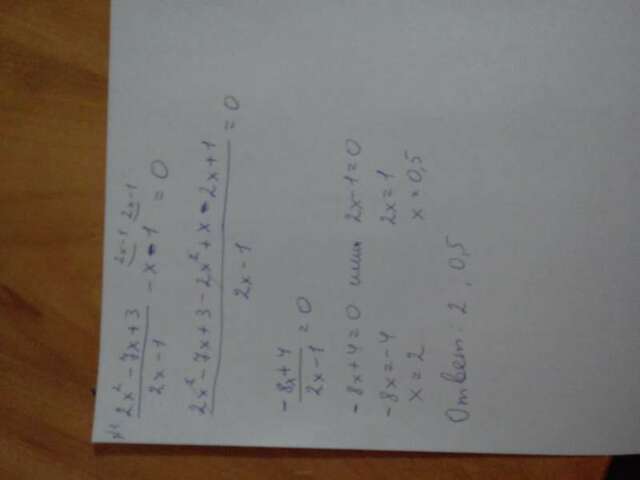 (2x²-7x+3)/(2x-1) - x - 1 = 0
(2x²-7x+3-2x²+x-2x+1)/(2x-1) = 0
(-8x+4)/(2x-1) = 0
-8x+4=0 или 2x-1=0
-8x=-4 2x=1
x=2 x=0,5
Ответ: 2; 0,5